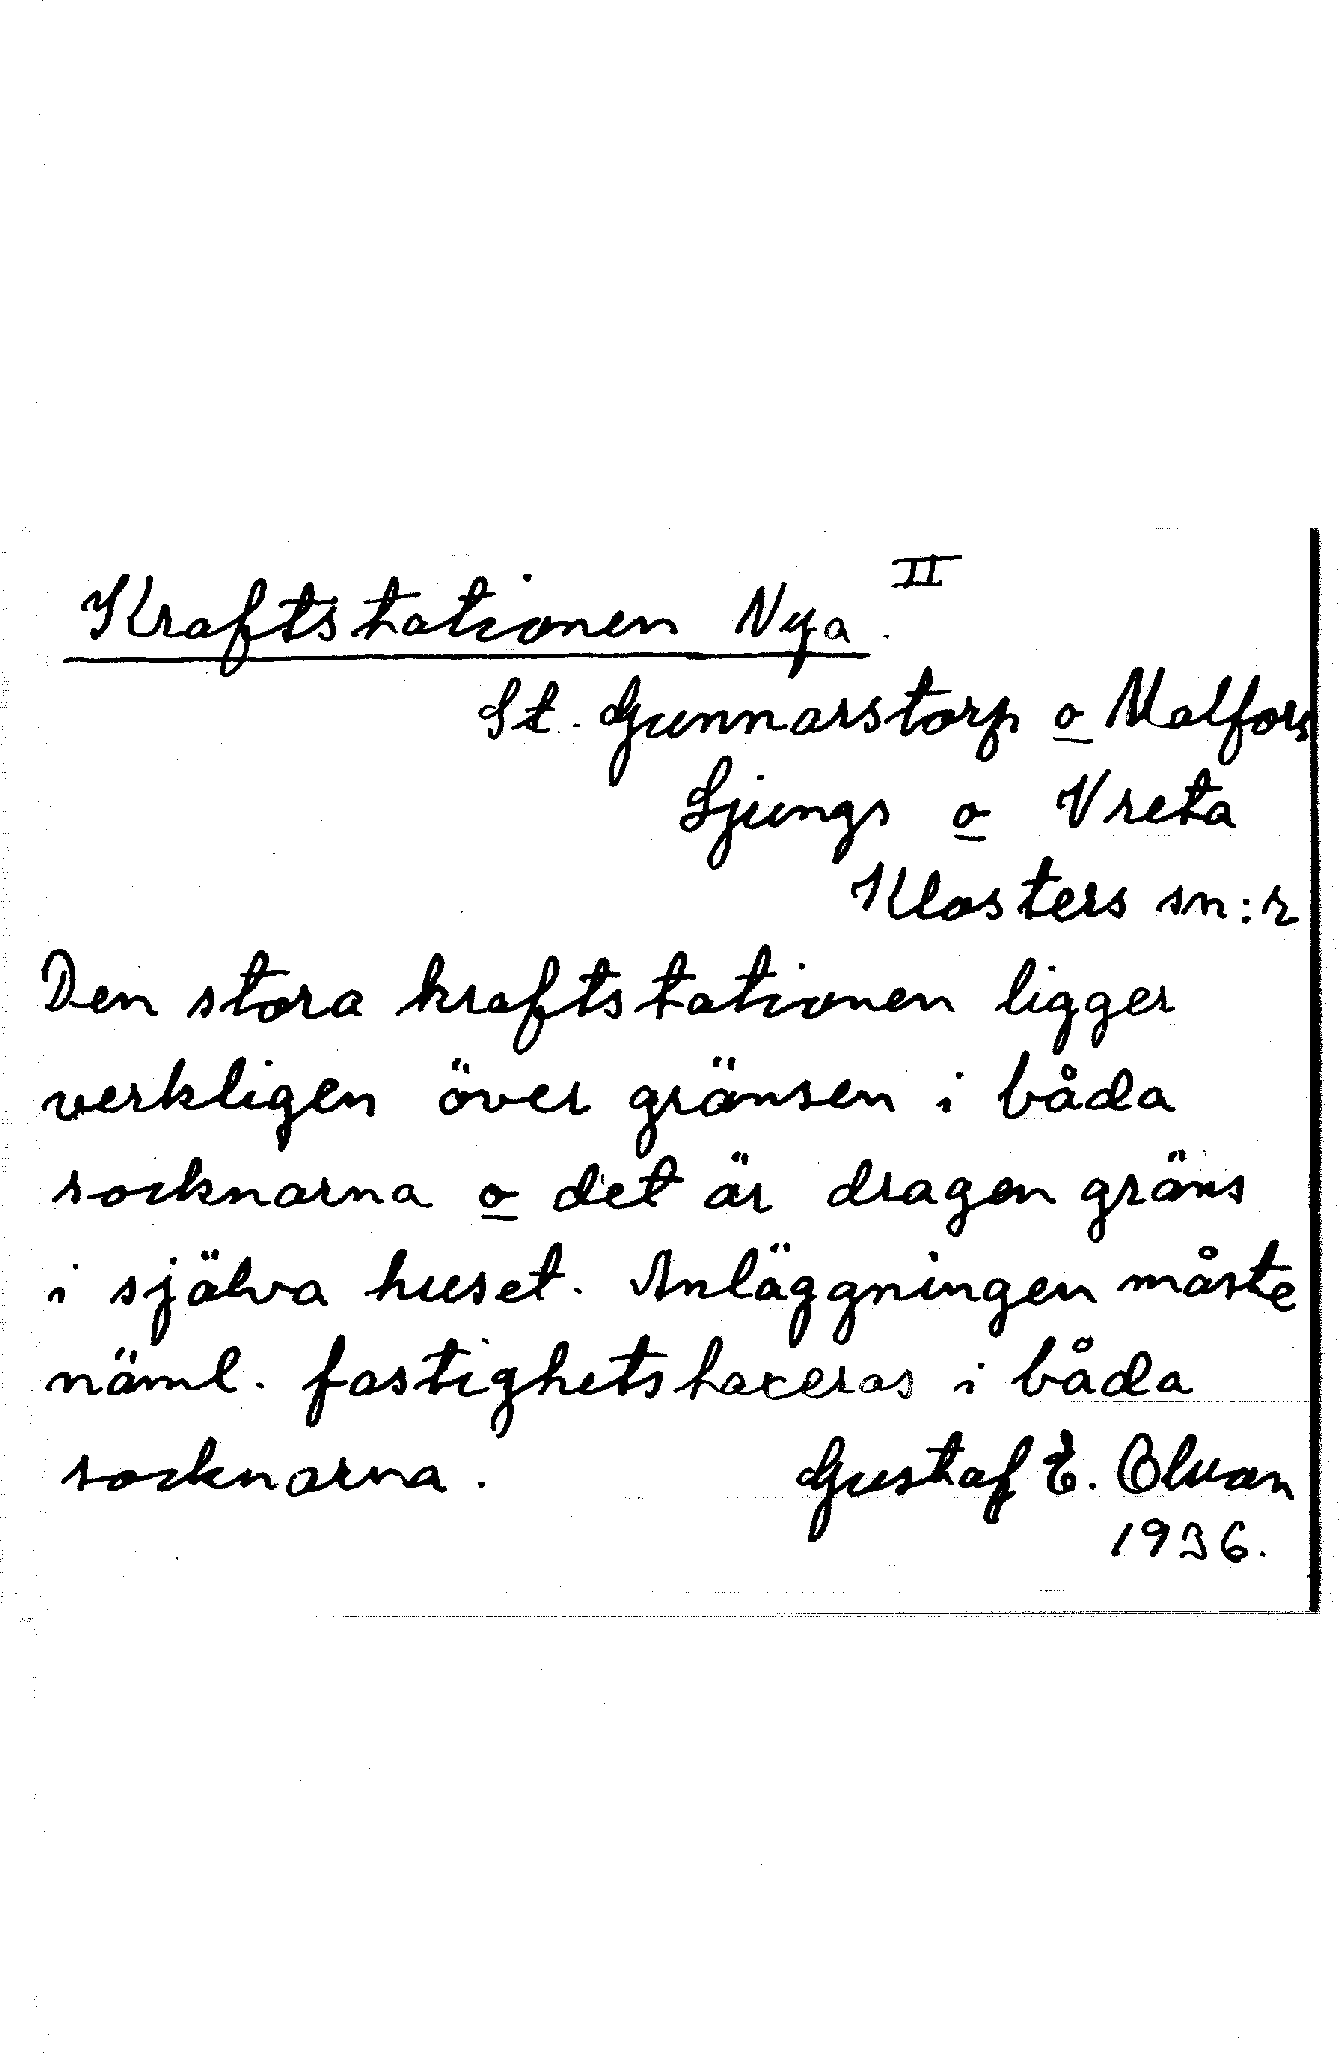 Kraftstationen Nya II
St. Gunnarstorp o Malfors
Ljungs o Vreta
Klosters sn:r
Den stora kraftstationen ligger
verkligen över gränsen i båda
socknarna o det är dragen gräns
i själva huset. Anläggningen måste
näml. fastighetstaxeras i båda
socknarna. Gustaf E.
1936.